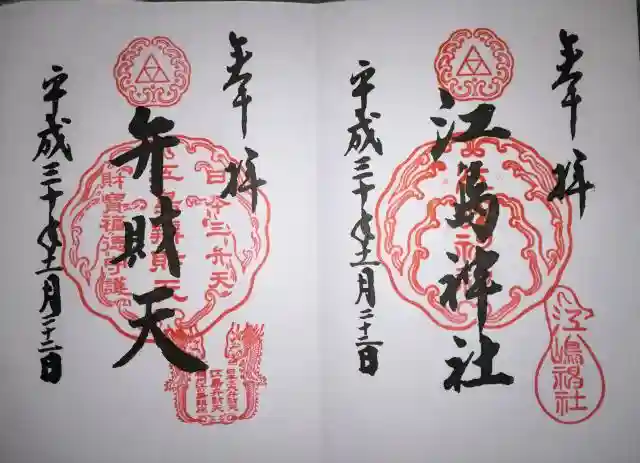 奉拝
江島神社
平成三十年十一月二十二日
江嶋神社
奉拝
弁財天
平成三十年十一月二十二日
日本三弁天
財寳福徳守護